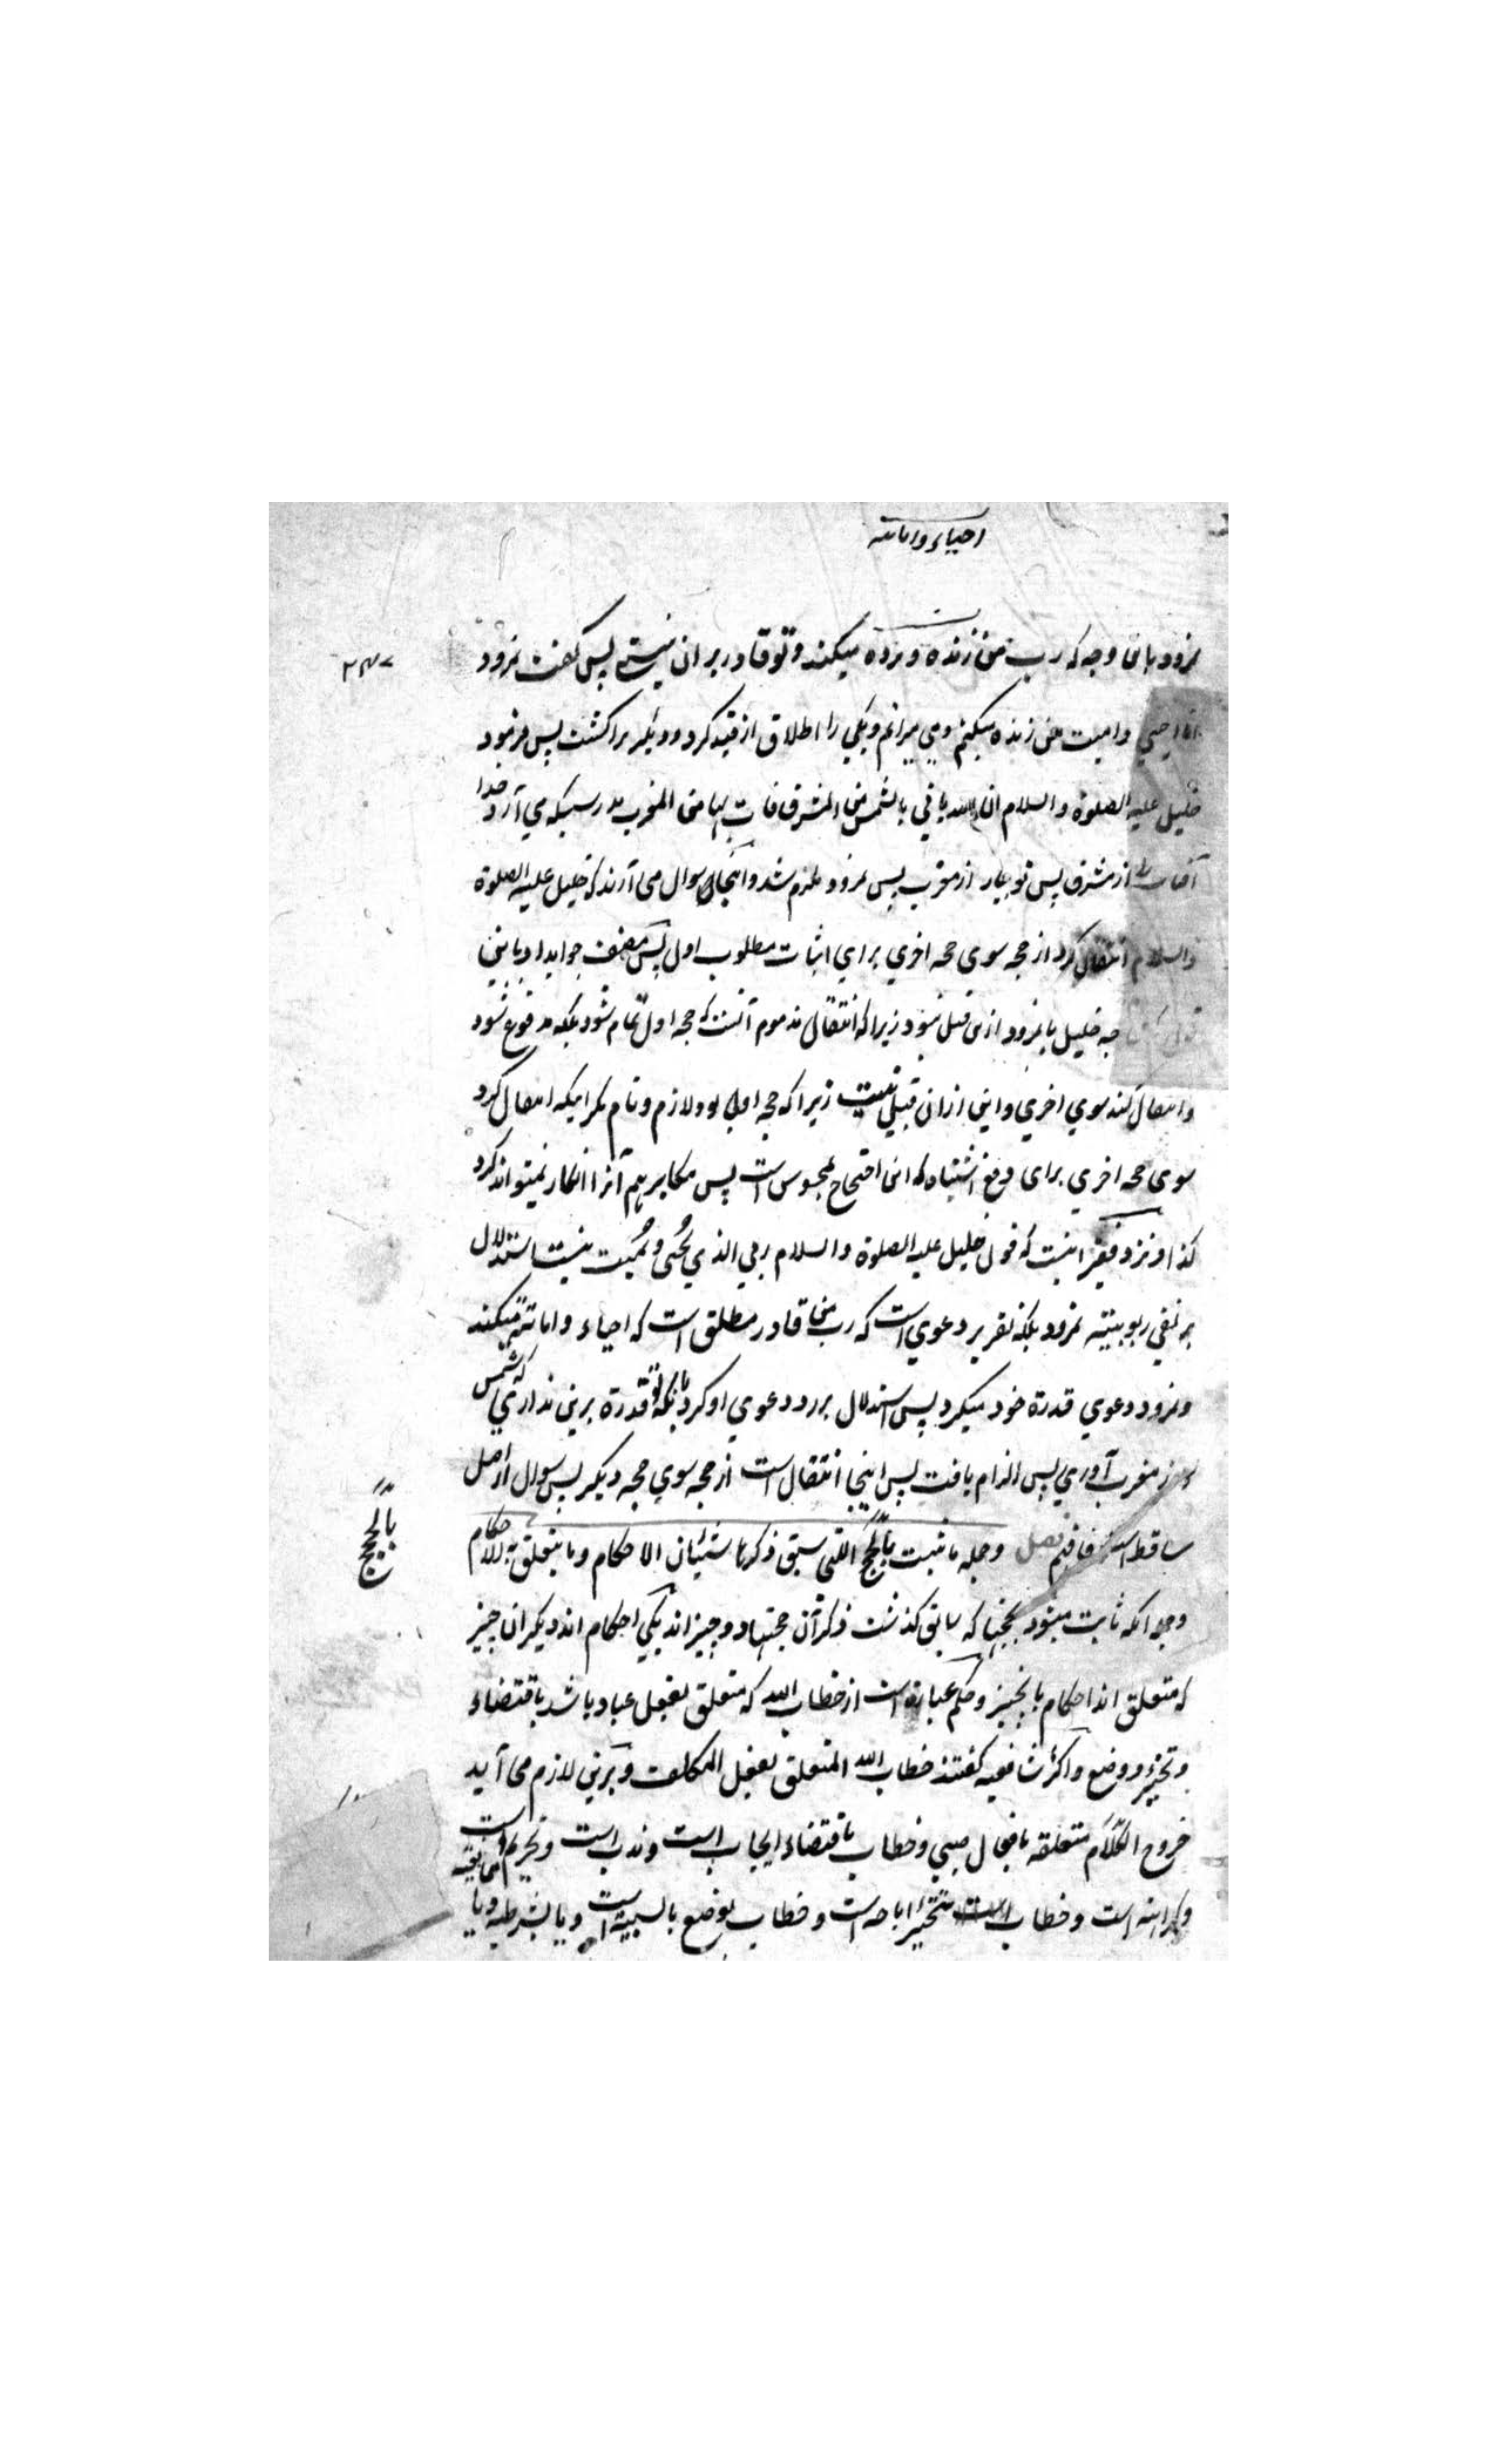 احیاء و اماتته
نمرود باین وجه که رب من زنده و مرده میکند و تو قادر بر ان نیستی پس گفت نمرود
۲۳۷
انا احیی و امیت من زنده میکنم و می میرانم و یکی را اطلاق از قید کرد و دیگر را کشت پس فرمود
خلیل علیه الصلوة و السلام ان الله یاتی بالشمس من المشرق فات بها من المغرب بدرستیکه می آرد خدا
آفتاب را از مشرق پس تو بیار از مغرب پس نمرود ملزم شد و اینجا سوال می آرند که خلیل علیه الصلوة
والسلام انتقال کرد از حجه سوی حجه اخری برای اثبات مطلوب اول پس مصنف جواب داد باین
جه خلیل با نمرود ازین قبیل نبود زیرا که انتقال مذموم آنست که حجه اول تمام نشود بلکه مدفوع شود
و انتقال کند سوی اخری و این ازان قبیل نیست زیرا که حجه اول بود لازم و تام مگر اینکه انتقال کرد
سوی حجه اخری برای دفع اشتباه که این احتجاج بمحسوس است پس مکابر هم آنرا انکار نمیتواند کرد
کذا و نزد فقیر اینست که قول خلیل علیه الصلوة و السلام ربی الذی یحیی و یمیت نیست استدلال
بر نفی ربوبیته نمرود بلکه تقریر دعوی است که رب من قادر مطلق است که احیاء و اماتته میکند
و نمرود دعوی قدرة خود میکرد پس استدلال بر رد دعوی او کرد بانکه تو قدرة برین نداری که شمس
از مغرب آوری پس الزام یافت پس اینجا انتقال است از حجه سوی حجه دیگر پس سوال از اصل
ساقط است فافهم فصل و جمله ما ثبت بالحجج التی سبق ذکرها شیئان الاحکام و ما یتعلق به الاحکام
بالحجج
و جمله آنکه ثابت میشود بحجتها که سابق گذشت ذکر آن حجتها دو چیز اند یکی احکام اند دیگر ان چیز
که متعلق اند احکام بانچیز و حکم عبارة است از خطاب الله که متعلق بفعل عباد باشد باقتضاء
و تخییر و وضع و اکثر شافعیه گفتند خطاب الله المتعلق بفعل المکلف و برین لازم می آید
خروج احکام متعلقه بافعال صبی و خطاب باقتضاء ایجاب است و ندب است و تحریم است
و کراهته است و خطاب بتخییر اباحه است و خطاب بوضع بالسببیة است و یا بشرطیه و یا